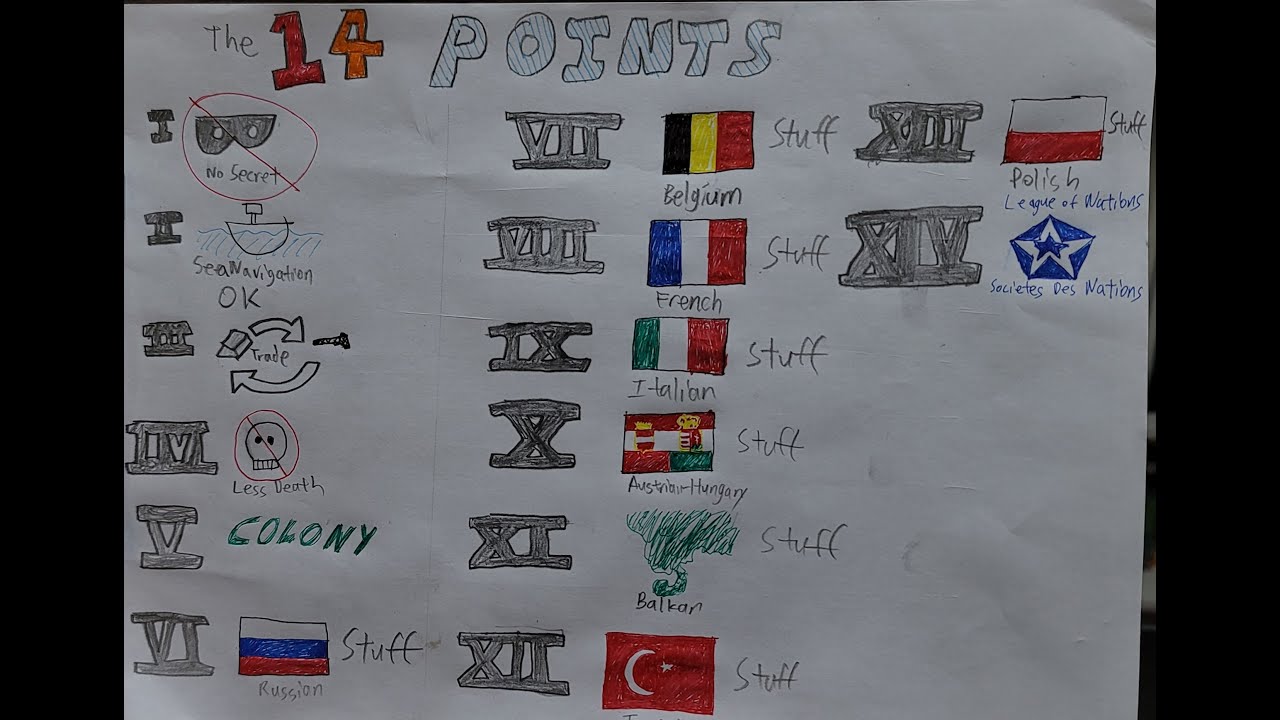 The 14 POINTS
I
No Secret
II
Sea Navigation
OK
III
Trade
IV
Less Death
V
COLONY
VI
Stuff
Russion
VII
Stuff
Belgium
VIII
Stuff
French
IX
Stuff
Italian
X
Stuff
Austrian-Hungary
XI
Stuff
Balkan
XII
Stuff
XIII
Stuff
Polish
League of Nations
XIV
Societes Des Nations